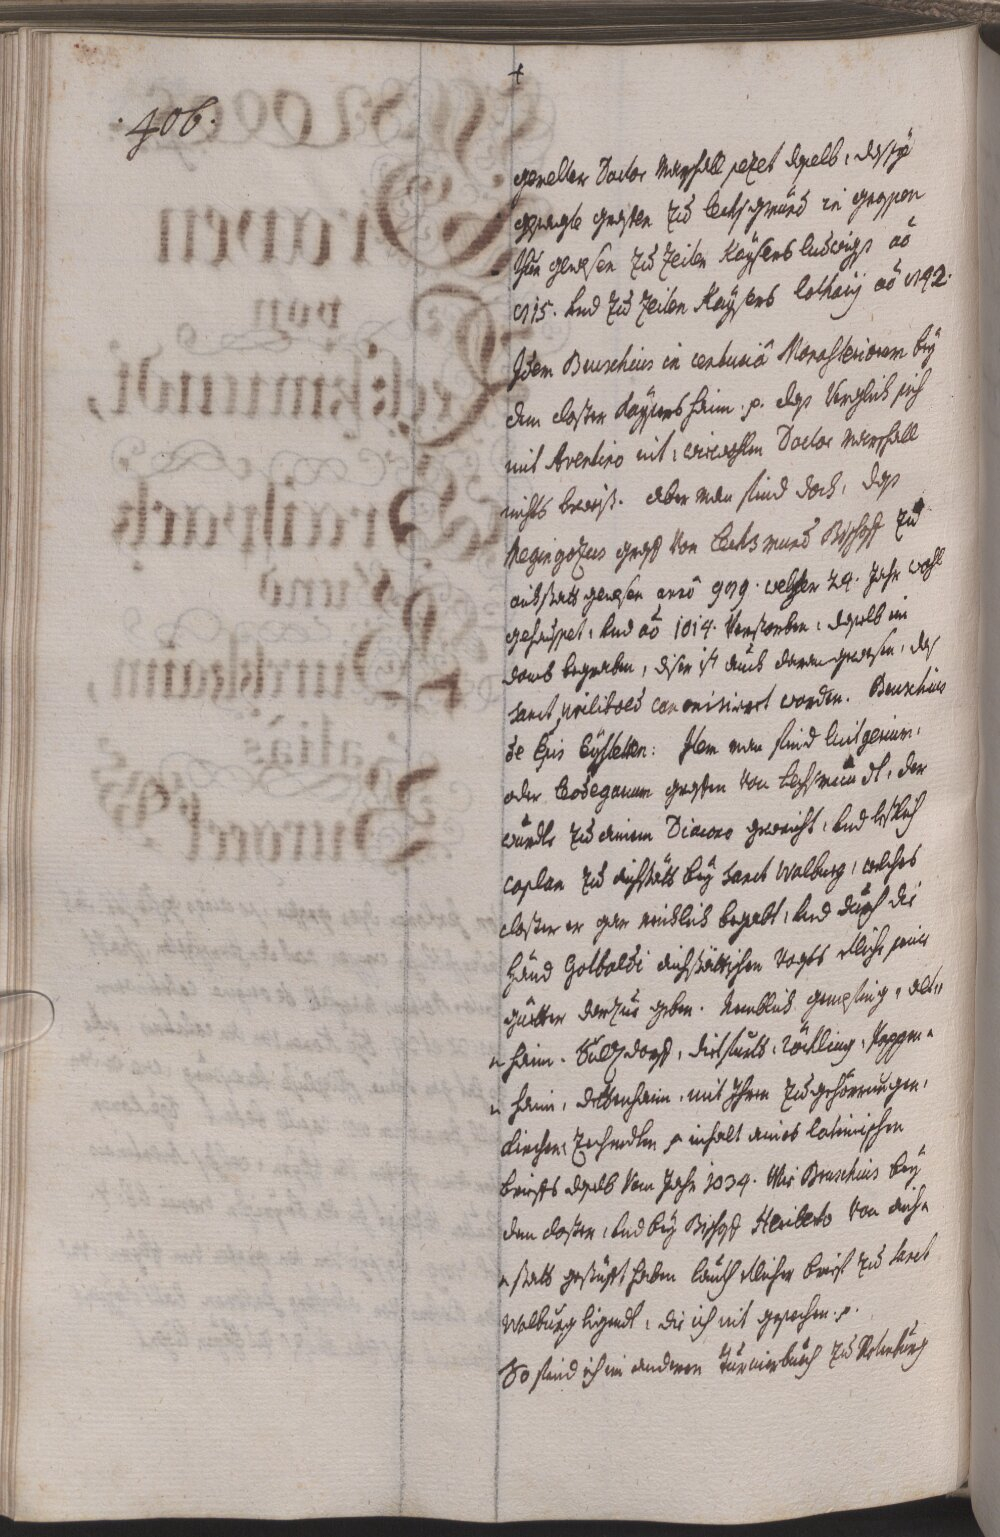 .406.
gemelter Doctor Marschall sezet daselb, das sÿe
gesagte graffen zu Lechsgmünd in grossen
Thun gewesen zu Zeiten Kaÿsers ludwigs aõ
915. und zu Zeiten Kaÿsers lotharÿ aõ 942.
Idem Bruschius in centuriâ Monasteriorum beÿ
dem closter Kaÿsershaim .p. das Vergleich sich
mit Aventino nit, wiewohlen Doctor Marschall
nichts beweist. aber man find doch, das
Megingozus graff Von Lechsmund Bischoff zu
aichstatt gewesen anno 989. welcher 24. Jahr wohl
gehauset, und aõ 1014. Verstorben, daselb im
domb begraben, diser ist auch daran gewesen, das
sanct Wilibold canonisiert worden. Bruschius
de Epis Eÿstetten: Item man find luitgerium,
oder Leodegarium graffen Von Lechsmündt, der
würdt zu einem Diacono geweicht, und letstlich
caplan zu aichstätt beÿ sanct Walburg, welches
closter er gar reichlich begabt, und durch die
händ Gotboldi aichstättischen Vogts etliche seine
güetter darzue geben. Nemblich gempfing, alt=
=haim. Sultzdorff, dietfurtt, Röttling, Pappen=
=haim, dettenhaim, mit Ihren zugehörungen,
kirchen, Zechendten p inhalt aines lateinischen
brieffs daselb Vom Jahr 1034. Wie Bruschius beÿ
dem closter, und beÿ Bischoff Heriberto Von aich=
=statt gestifft haben lauth etlicher brieff zu sanct
Walburg ligendt, die ich nit gesechen .p.
So find ich im anderen Turnierbuech zu Rotenburg